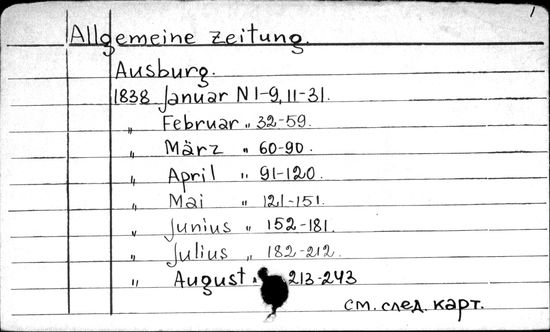 1
Allgemeine Zeitung.
Ausburg.
1838 Januar N 1-9, 11-31.
„ Februar „ 32-59.
„ März „ 60-90.
„ April „ 91-120.
„ Mai „ 121-151.
„ Junius „ 152-181.
„ Julius „ 182-212.
„ August „ 213-243
см. след. карт.